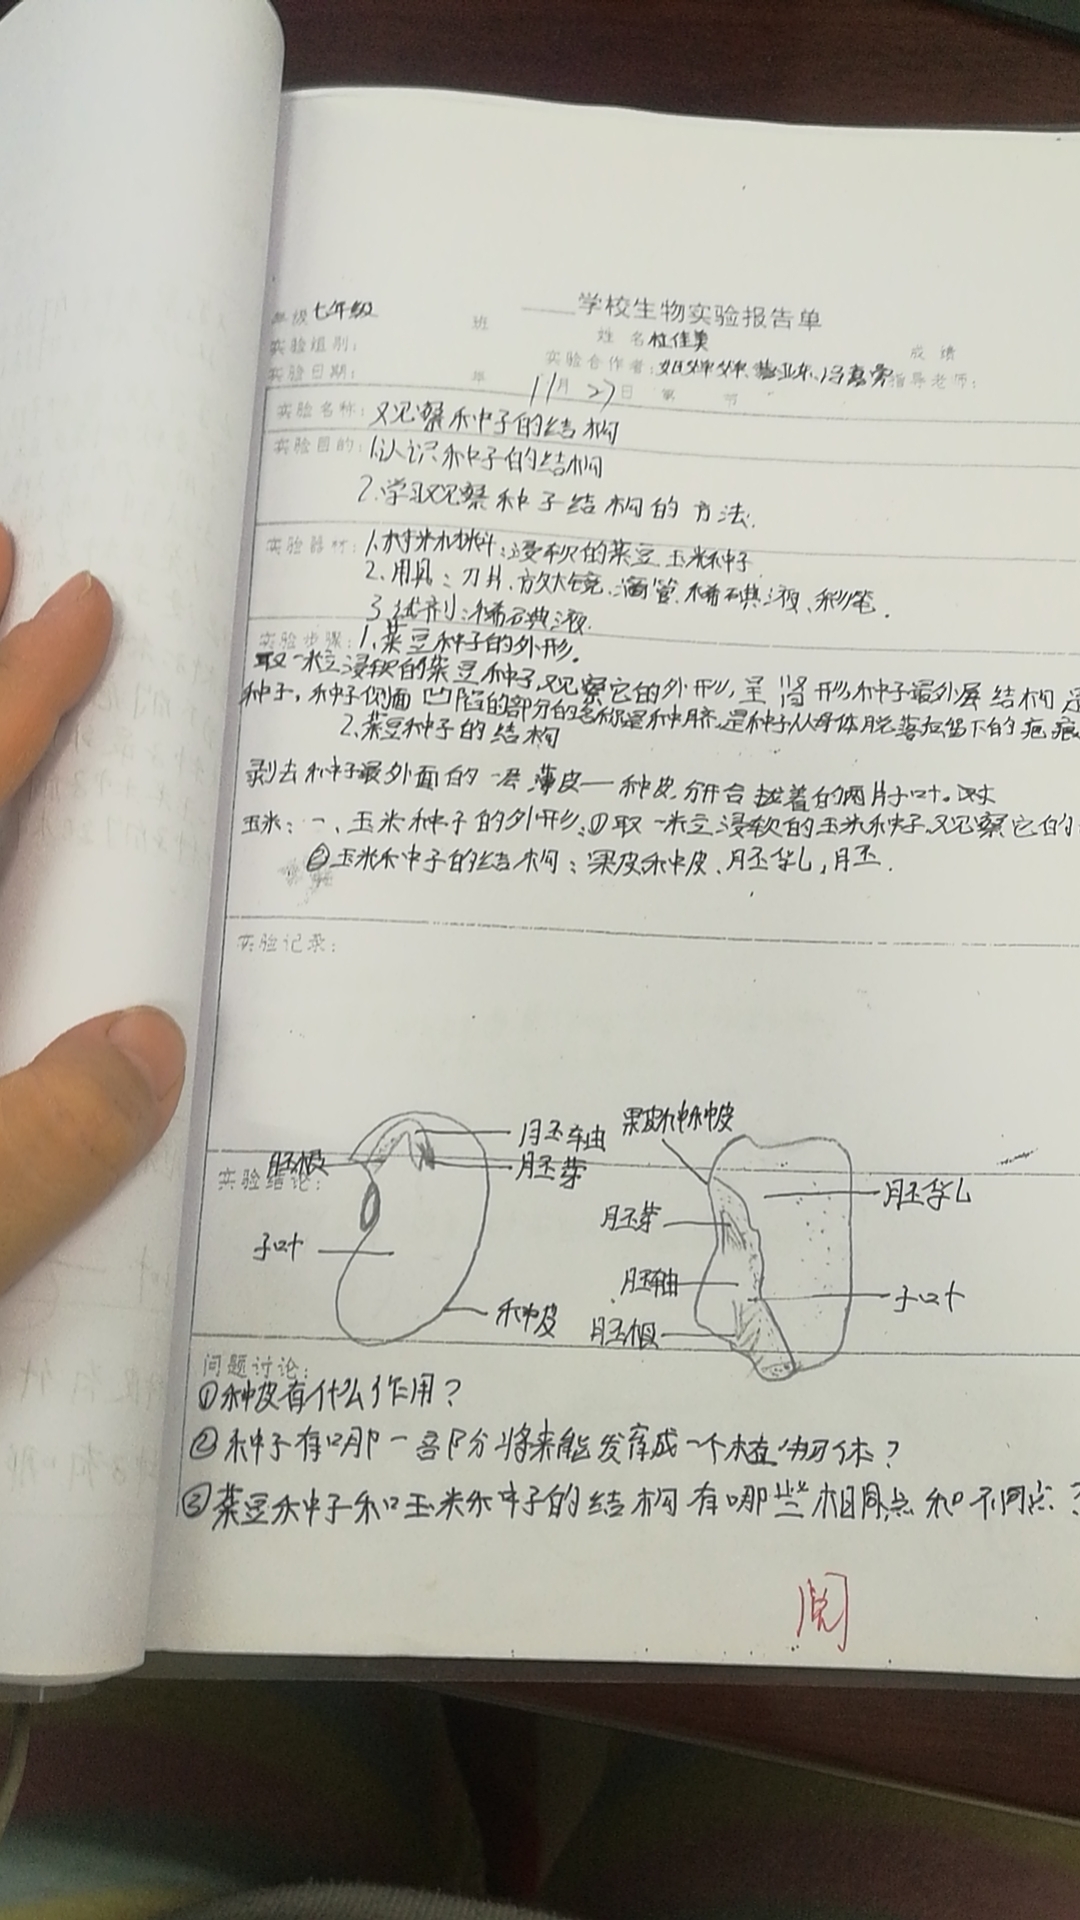 学校生物实验报告单
年级七年级 班 姓名杜佳美 成绩
实验组别: 实验合作者: 指导老师:
实验日期: 年 11月27日 第 节
实验名称:观察种子的结构
实验目的:1.认识种子的结构
2.学习观察种子结构的方法.
实验器材:1.材料:浸软的菜豆、玉米种子
2.用具:刀片、放大镜、滴管、稀碘液、彩笔.
3.试剂:稀碘液.
实验步骤:1.菜豆种子的外形.
取一粒浸软的菜豆种子,观察它的外形,呈肾形,种子最外层结构是
种子,种子侧面凹陷的部分的名称是种脐,是种子从母体脱落后留下的疤痕
2.菜豆种子的结构
剥去种子最外面的一层薄皮——种皮,分开合拢着的两片子叶。
玉米:一、玉米种子的外形:①取一粒浸软的玉米种子,观察它的
②玉米种子的结构:果皮种皮、胚乳,胚.
实验记录:
胚轴 果皮和种皮
胚根 胚芽
实验结论:
胚乳
胚芽
子叶
胚轴
子叶
种皮 胚根
问题讨论:
①种皮有什么作用?
②种子有哪一部分将来能发育成一个植物体?
③菜豆种子和玉米种子的结构有哪些相同点和不同点?
阅